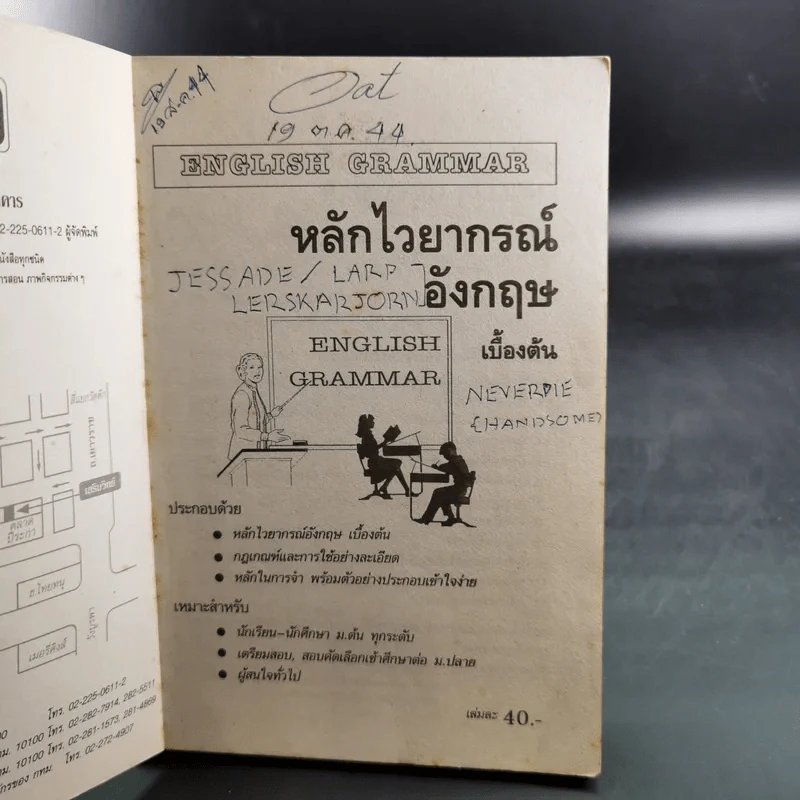 คาร
2-225-0611-2 ผู้จัดพิมพ์
นังสือทุกชนิด
ารสอน ภาพกิจกรรมต่าง ๆ
ถ.เยาวราช
เสริมวิทย์
ตลาด
ปีระกา
ถ.ไทยหมู
วังบูรพา
เมอรี่คิงส์
00 โทร. 02-225-0611-2
ทม. 10100 โทร. 02-282-7914, 282-5511
ทม. 10100 โทร. 02-281-1573, 281-4869
จักรของ กทม. โทร. 02-272-4907
19 ส.ค. 44
Oat
19 ต.ค. 44.
ENGLISH GRAMMAR
หลักไวยากรณ์
JESSADE / LARP
LERSKARJORN
อังกฤษ
เบื้องต้น
ENGLISH
GRAMMAR
NEVERDIE
(HANDSOME)
ประกอบด้วย
● หลักไวยากรณ์อังกฤษ เบื้องต้น
● กฎเกณฑ์และการใช้อย่างละเอียด
● หลักในการจำ พร้อมตัวอย่างประกอบเข้าใจง่าย
เหมาะสำหรับ
● นักเรียน-นักศึกษา ม.ต้น ทุกระดับ
● เตรียมสอบ, สอบคัดเลือกเข้าศึกษาต่อ ม.ปลาย
● ผู้สนใจทั่วไป
เล่มละ 40.-